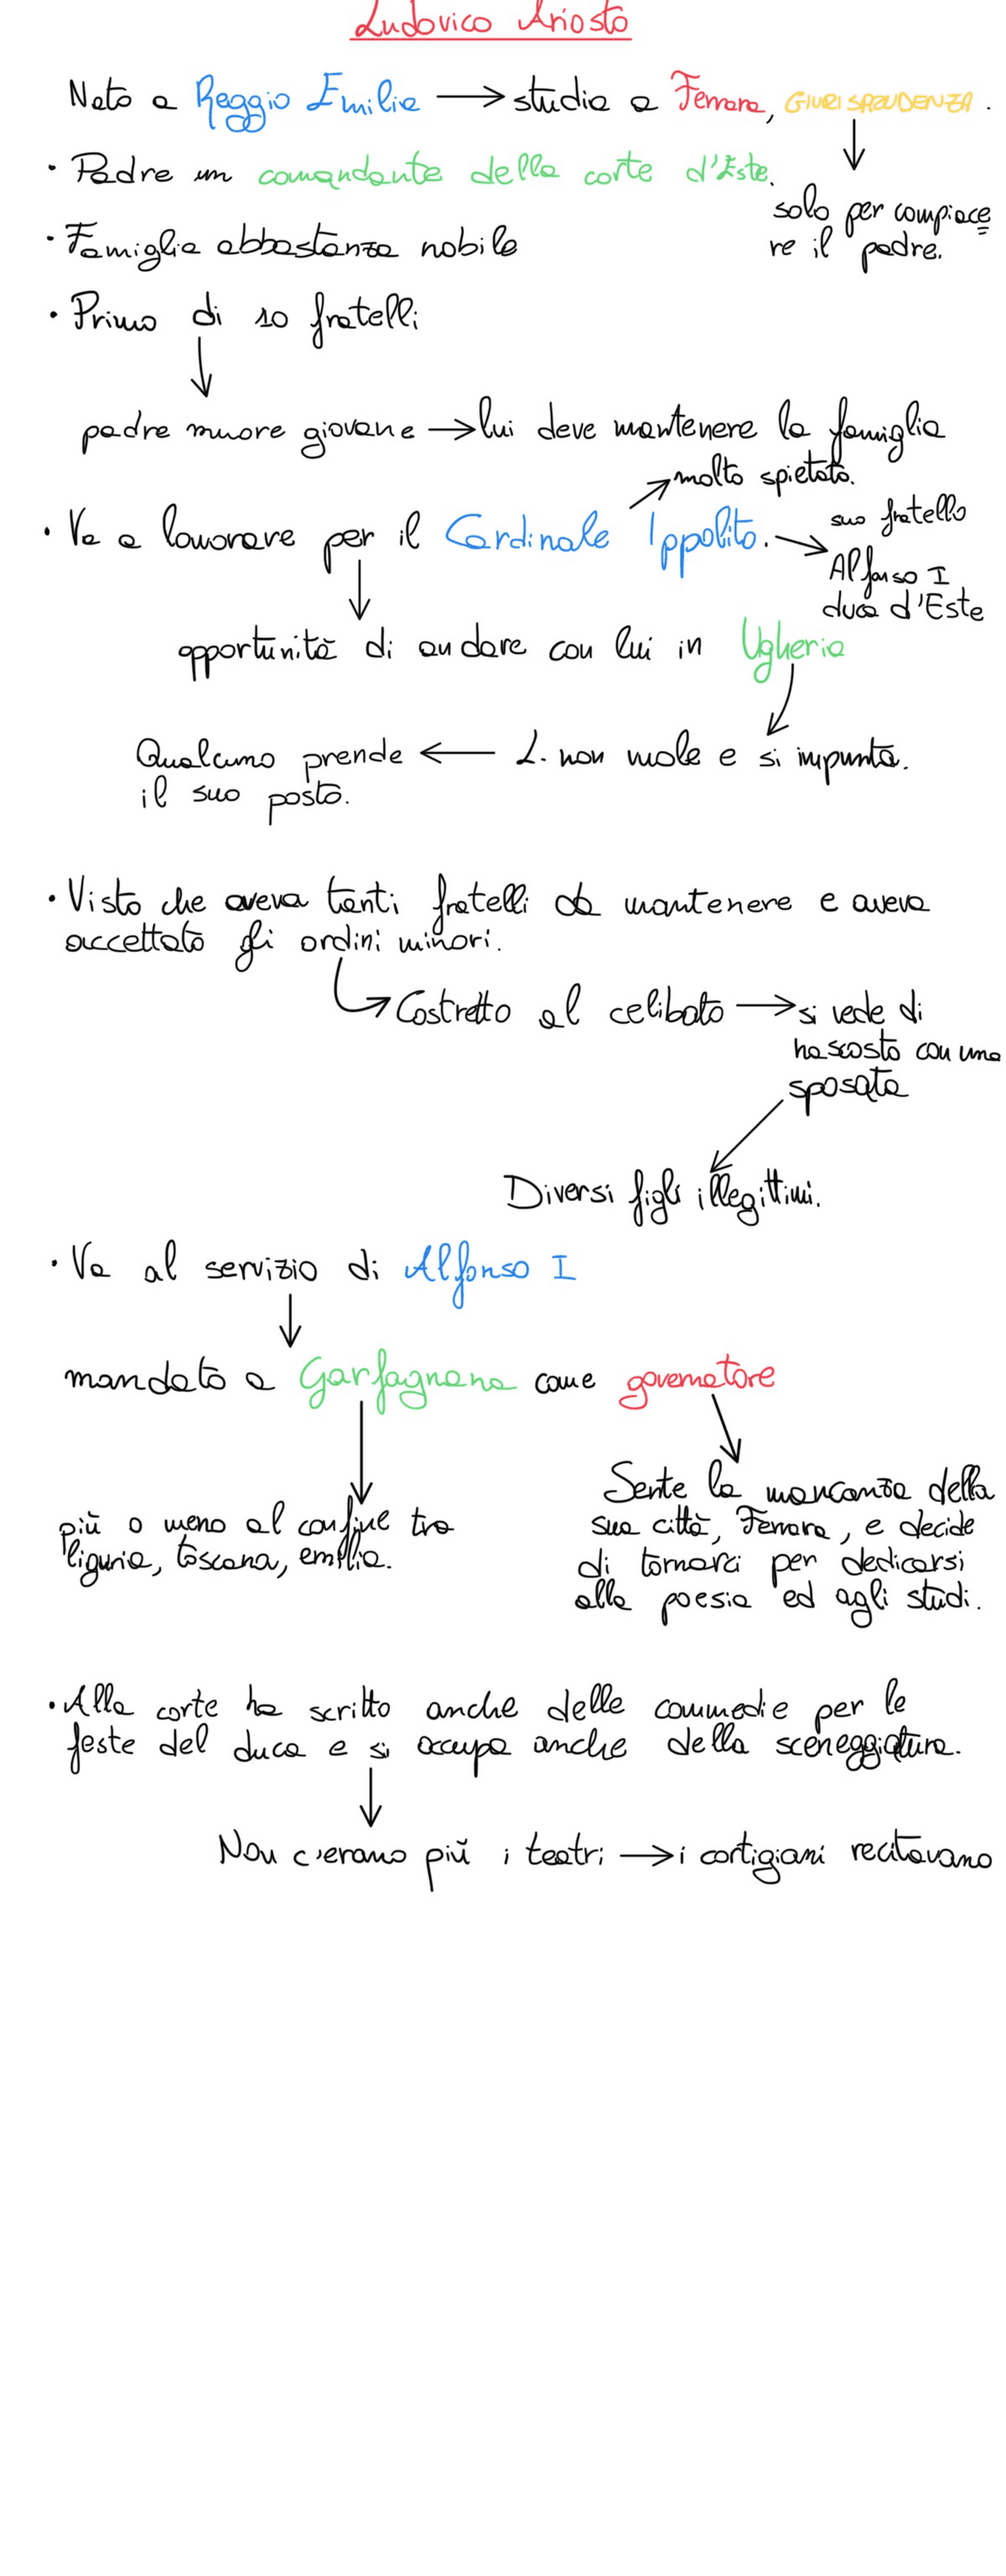 Ludovico Ariosto
Nato a Reggio Emilia → studia a Ferrara, GIURISPRUDENZA.
• Padre un comandante della corte d'Este.
solo per compiace
re il padre.
• Famiglia abbastanza nobile
• Primo di 10 fratelli
padre muore giovane → lui deve mantenere la famiglia
molto spietato.
• Va a lavorare per il Cardinale Ippolito. →
suo fratello
Alfonso I
duca d'Este
opportunità di andare con lui in Ugheria
Qualcuno prende ← L. non vuole e si impunta.
il suo posto.
• Visto che aveva tanti fratelli da mantenere e aveva
accettato gli ordini minori.
Costretto al celibato → si vede di
nascosto con una
sposata
Diversi figli illegittimi.
• Va al servizio di Alfonso I
mandato a Garfagnana come governatore
più o meno al confine tra
liguria, toscana, emilia.
Sente la mancanza della
sua città, Ferrara, e decide
di tornarci per dedicarsi
alla poesia ed agli studi.
• Alla corte ha scritto anche delle commedie per le
feste del duca e si occupa anche della sceneggiatura.
Non c'erano più i teatri → i cortigiani recitavano